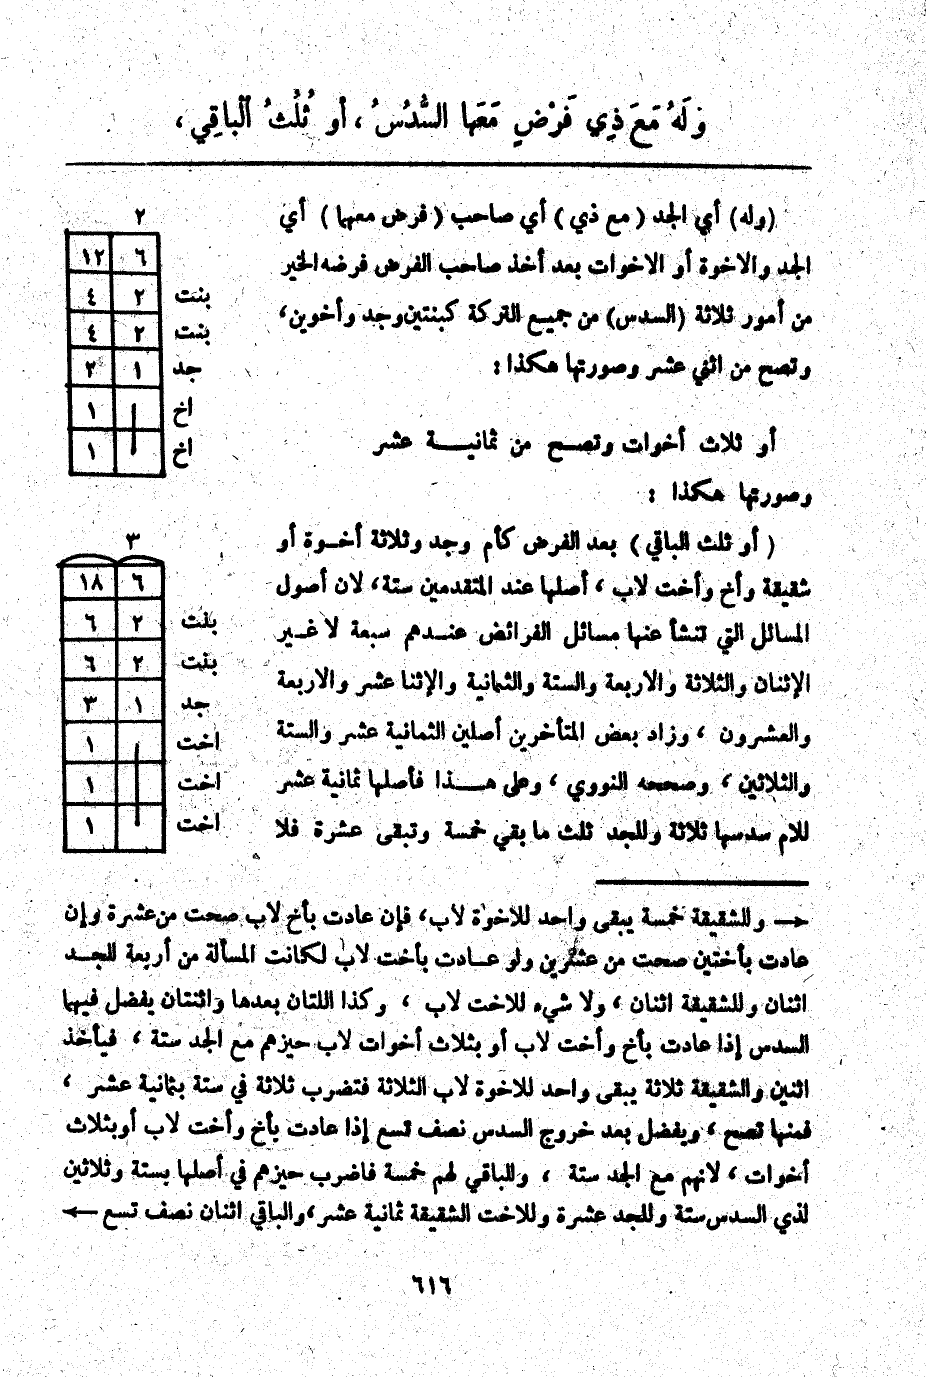 وَلَهُ مَعَ ذِي فَرْضٍ مَعَها السُّدُسُ ، أو ثُلُثُ الْباقِي ،
(وله) أي الجد ( مع ذي ) أي صاحب ( فرض معها ) أي
الجد والاخوة أو الاخوات بعد أخذ صاحب الفرض فرضه الخير
من أمور ثلاثة (السدس) من جميع التركة كبنتين وجد وأخوين،
وتصح من اثني عشر وصورتها هكذا :
٢
٦ ١٢
بنت ٢ ٤
بنت ٢ ٤
جد ١ ٢
اخ ١
اخ ١
أو ثلاث أخوات وتصح من ثمانية عشر
وصورتها هكذا :
٣
٦ ١٨
بنت ٢ ٦
بنت ٢ ٦
جد ١ ٣
اخت ١
اخت ١
اخت ١
( أو ثلث الباقي ) بعد الفرض كأم وجد وثلاثة أخوة أو
شقيقة وأخ وأخت لاب ، أصلها عند المتقدمين ستة، لان أصول
المسائل التي تنشأ عنها مسائل الفرائض عندهم سبعة لا غير
الإثنان والثلاثة والاربعة والستة والثمانية والإثنا عشر والاربعة
والعشرون ، وزاد بعض المتأخرين أصلين الثمانية عشر والستة
والثلاثين ، وصححه النووي ، وعلى هذا فأصلها ثمانية عشر
للام سدسها ثلاثة وللجد ثلث ما بقي خمسة وتبقى عشرة فلا
← وللشقيقة خمسة يبقى واحد للاخوة لاب، فإن عادت بأخ لاب صحت من عشرة وإن
عادت بأختين صحت من عشرين ولو عادت بأخت لاب لكانت المسألة من أربعة للجد
اثنان وللشقيقة اثنان ، ولا شيء للاخت لاب ، وكذا اللتان بعدها واثنتان يفضل فيها
السدس إذا عادت بأخ وأخت لاب أو بثلاث أخوات لاب حيزهم مع الجد ستة ، فيأخذ
اثنين والشقيقة ثلاثة يبقى واحد للاخوة لاب الثلاثة فتضرب ثلاثة في ستة بثمانية عشر ،
فمنها تصح ، ويفضل بعد خروج السدس نصف تسع إذا عادت بأخ وأخت لاب أو بثلاث
أخوات ، لانهم مع الجد ستة ، والباقي لهم خمسة فاضرب حيزهم في أصلها بستة وثلاثين
لذي السدس ستة وللجد عشرة وللاخت الشقيقة ثمانية عشر، والباقي اثنان نصف تسع ←
٦١٦